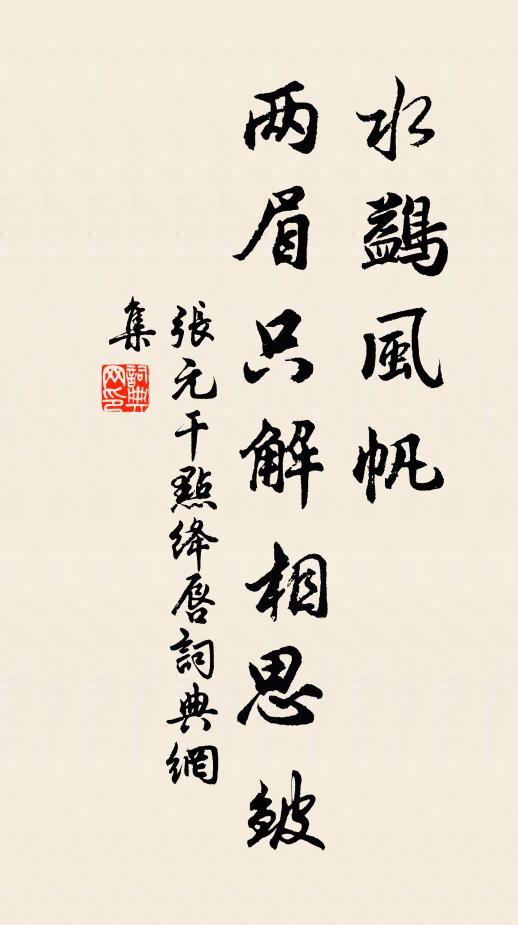 水鷁風帆
两眉只解相思皺
張元干點绛唇詞典網
集
詞典
网印